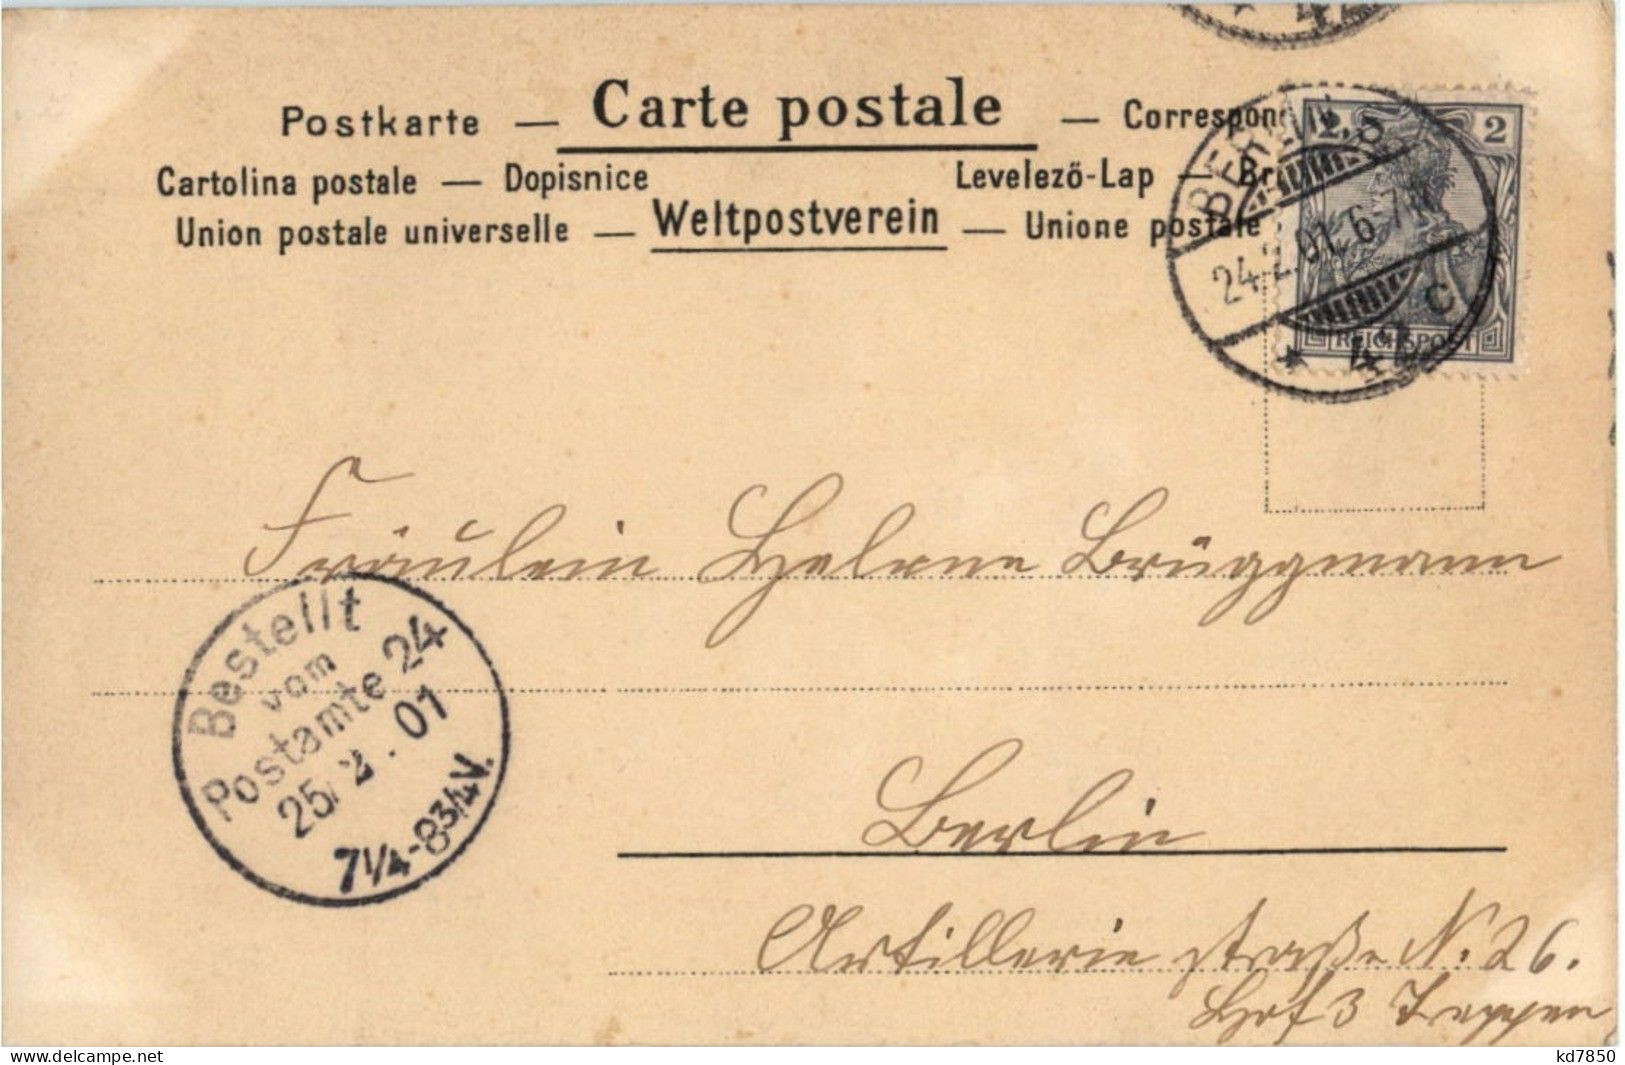 * 42
Postkarte — Carte postale — Correspon
Cartolina postale — Dopisnice Levelező-Lap — Br
Union postale universelle — Weltpostverein — Unione postale
2 2
REICHSPOST
BERLIN, O
24.2.01. 6-7N
* 42 c
Fräulein Helene Brüggmann
Bestellt
vom
Postamte 24
25/2.01
7¼-8¾V.
Berlin
Artilleriestraße N: 26.
Hof 3 Treppen
kd7850
delcampe.net